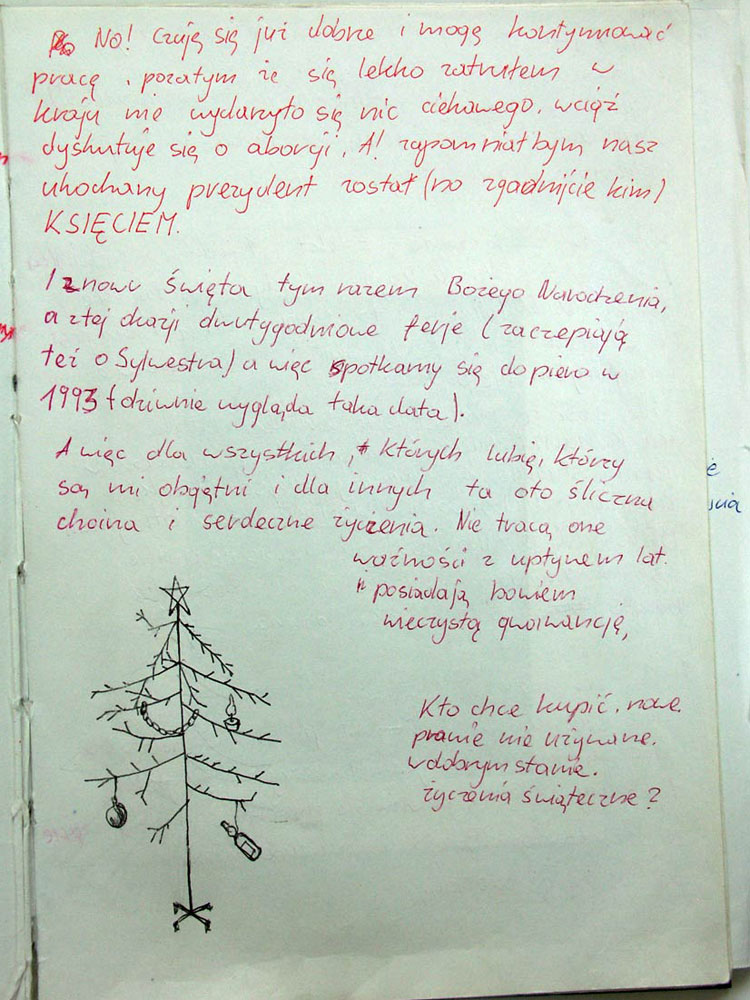 No! czują się już dobrze i mogę kontynuować
pracę, pozatym że się lekko zatrułem w
kraju nie wydarzyło się nic ciekawego, wciąż
dyskutuje się o aborcji. A! zapomniałbym nasz
ukochany prezydent został (no zgadnijcie kim)
KSIĘCIEM.
I znowu święta tym razem Bożego Narodzenia,
a z tej okazji dwutygodniowe ferje (zaczepiają
też o Sylwestra) a więc spotkamy się dopiero w
1993 (dziwnie wygląda taka data).
A więc dla wszystkich, których lubię, którzy
są mi obojętni i dla innych ta oto śliczna
choina i serdeczne życzenia. Nie tracą one
ważności z upływem lat.
posiadają bowiem
wieczystą gwarancję,
Kto chce kupić, nowe
prawie nie używane.
w dobrym stanie.
życzenia świąteczne?